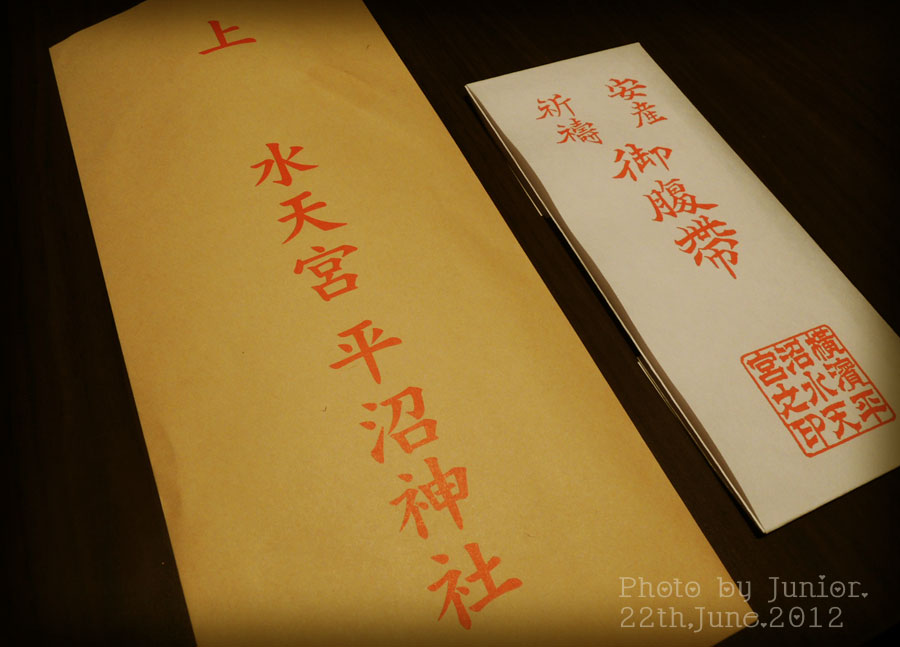 上
水天宮 平沼神社
安産
祈禱
御腹帯
横濱平
沼水天
宮之印
Photo by Junior.
22th.June.2012